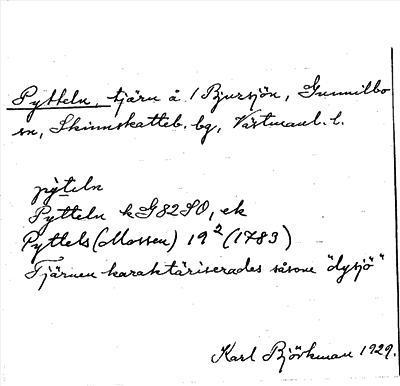 Pytteln, tjärn å 1 Bjursjön, Gunnilbo
sn, Skinnskatteb. bg, Västmanl. l.
pýteln
Pytteln kG82SO, ek
Pyttels (Mossen) 19² (1783)
Tjärnen karaktäriserades såsom "dysjö"
Karl Björkman 1929.